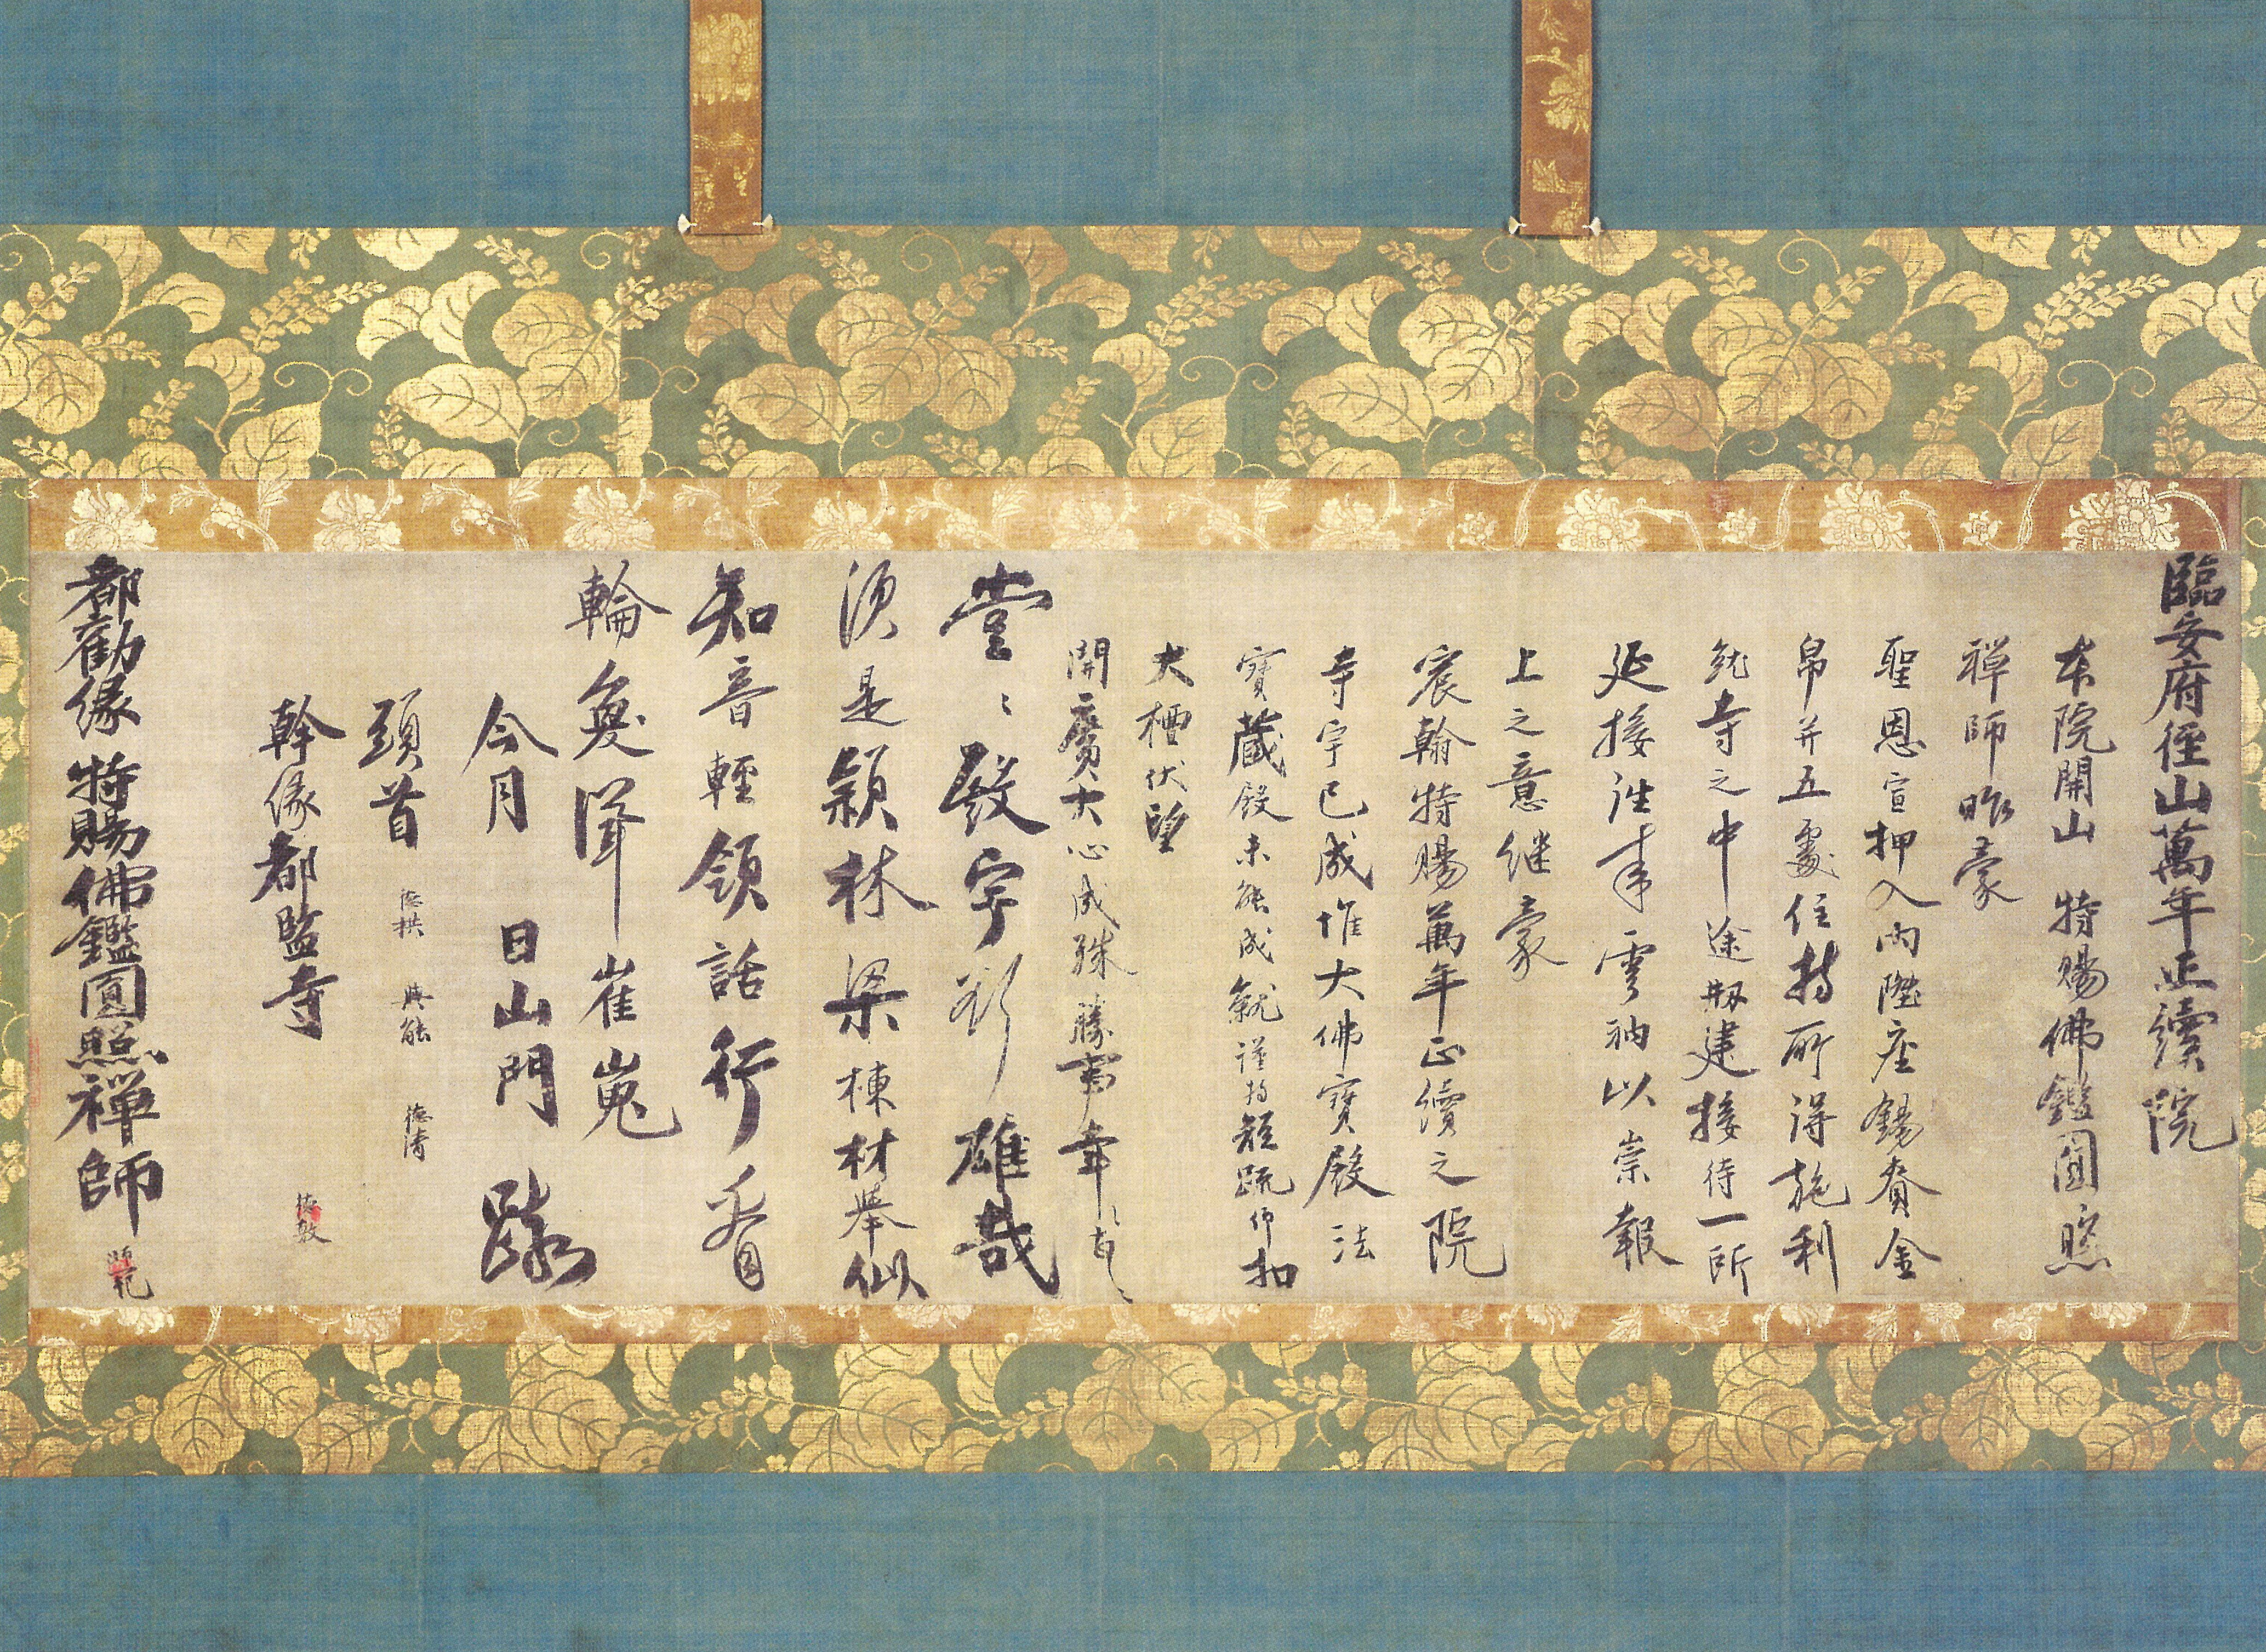 臨安府徑山萬年正續院
本院開山 特賜佛鑑圓照
禅師昨蒙
聖恩宣押入内陞座錫賚金
帛并五處住持所得施利
就寺之中途剏建接待一所
延接往来雲衲以崇報
上之意继蒙
宸翰特賜萬年正續之院
寺宇已成惟大佛寳殿法
寳藏殿未能成就謹持短疏仰扣
大檀伏望
開廣大心成殊勝事幸
堂〻殿宇彩雄哉
須是穎林梁棟材舉似
知音輕領話行看
輪奐聳崔嵬
今月 日山門 疏
頭首 德拱 與能 德清
幹縁都監寺 德敦
都勸縁特賜佛鑑圓照禅師 師範